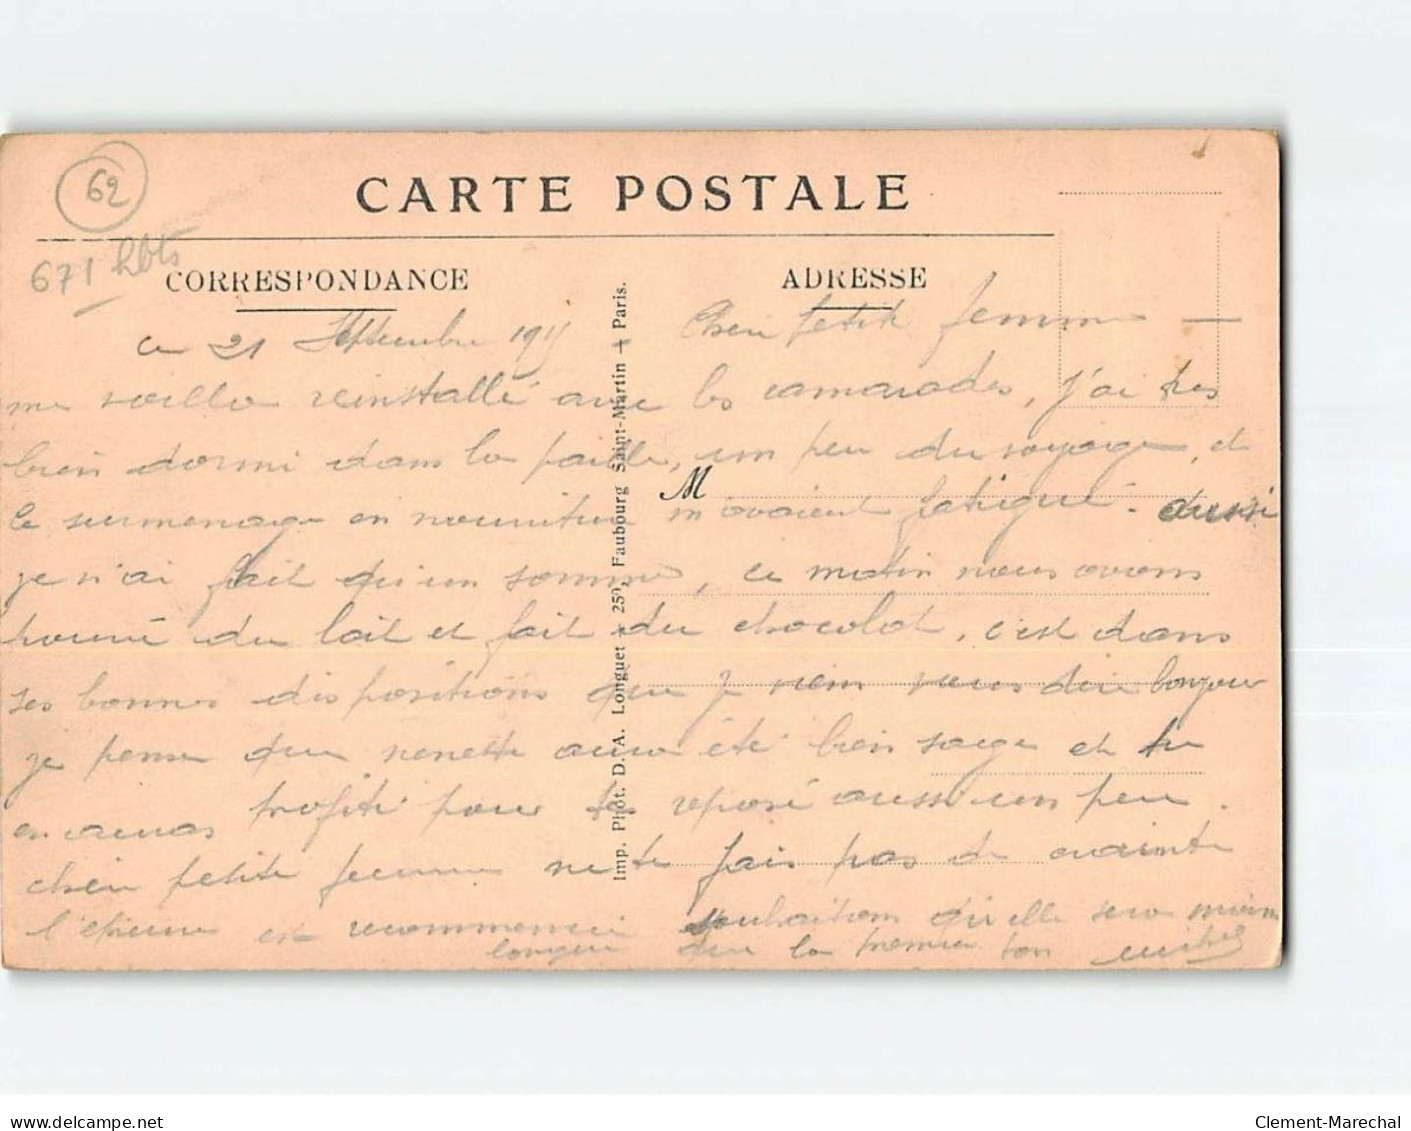 62
671 hbts
CARTE POSTALE
CORRESPONDANCE
ADRESSE
Imp. Phot. D. A. Longuet + 250, Faubourg Saint-Martin + Paris.
M
ce 21 Septembre 1915 Chère petite femme —
me voilla reinstallé avec les camarades, j'ai tres
bien dormi dans la paille, un peu du voyage, et
le surmenage en nourriture m'avaient fatigué. aussi
je n'ai fait qu'un somme, ce matin nous avons
trouvé du lait et fait du chocolat, c'est dans
ses bonnes dispositions que je viens vous dire bonjour
je pense que nenette aura été bien sage et tu
en auras profité pour te reposé aussi un peu.
chère petite femme ne te fais pas de crainte
l'épreuve est recommencé souhaitons qu'elle sera moins
longue que la premiere ton
delcampe.net
Clement-Marechal